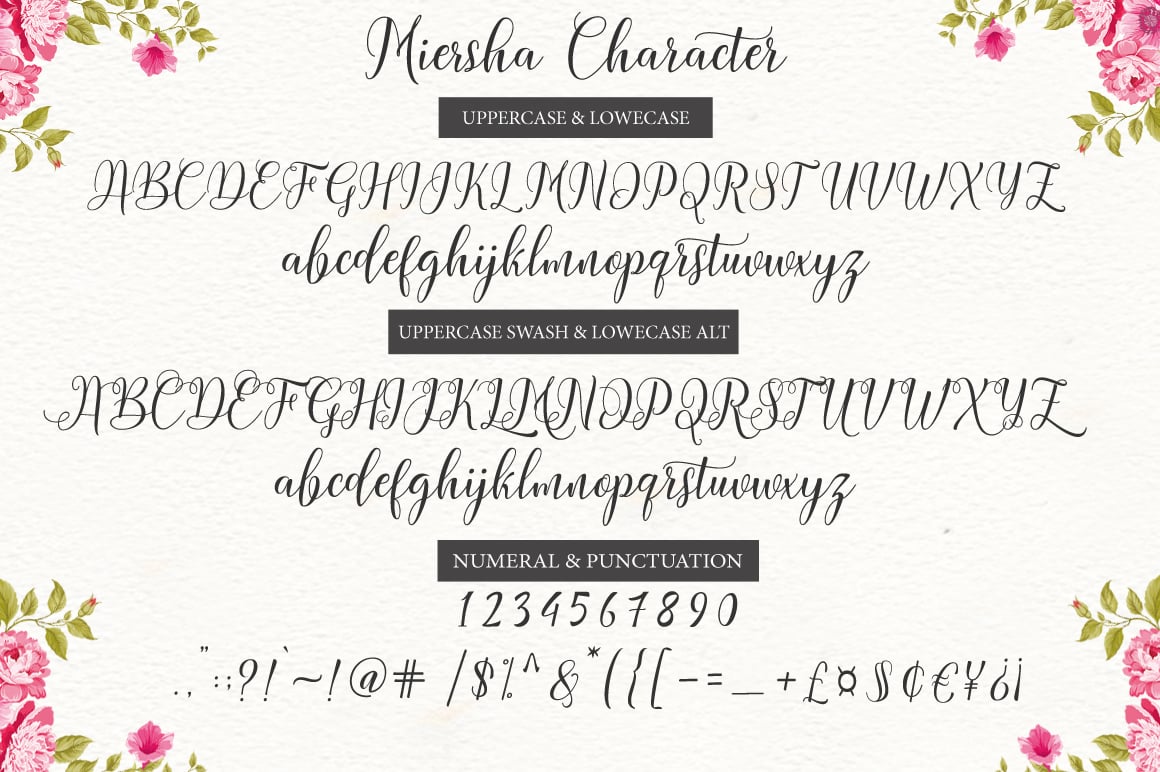 Miersha Character
UPPERCASE & LOWECASE
ABCDEFGHIJKLMNOPQRSTUVWXYZ
abcdefghijklmnopqrstuvwxyz
UPPERCASE SWASH & LOWECASE ALT
ABCDEFGHIJKLMNOPQRSTUVWXYZ
abcdefghijklmnopqrstuvwxyz
NUMERAL & PUNCTUATION
1234567890
.,":;?!`~!@# /$%^&*({[-=_+£¤§¢€¥¿¡